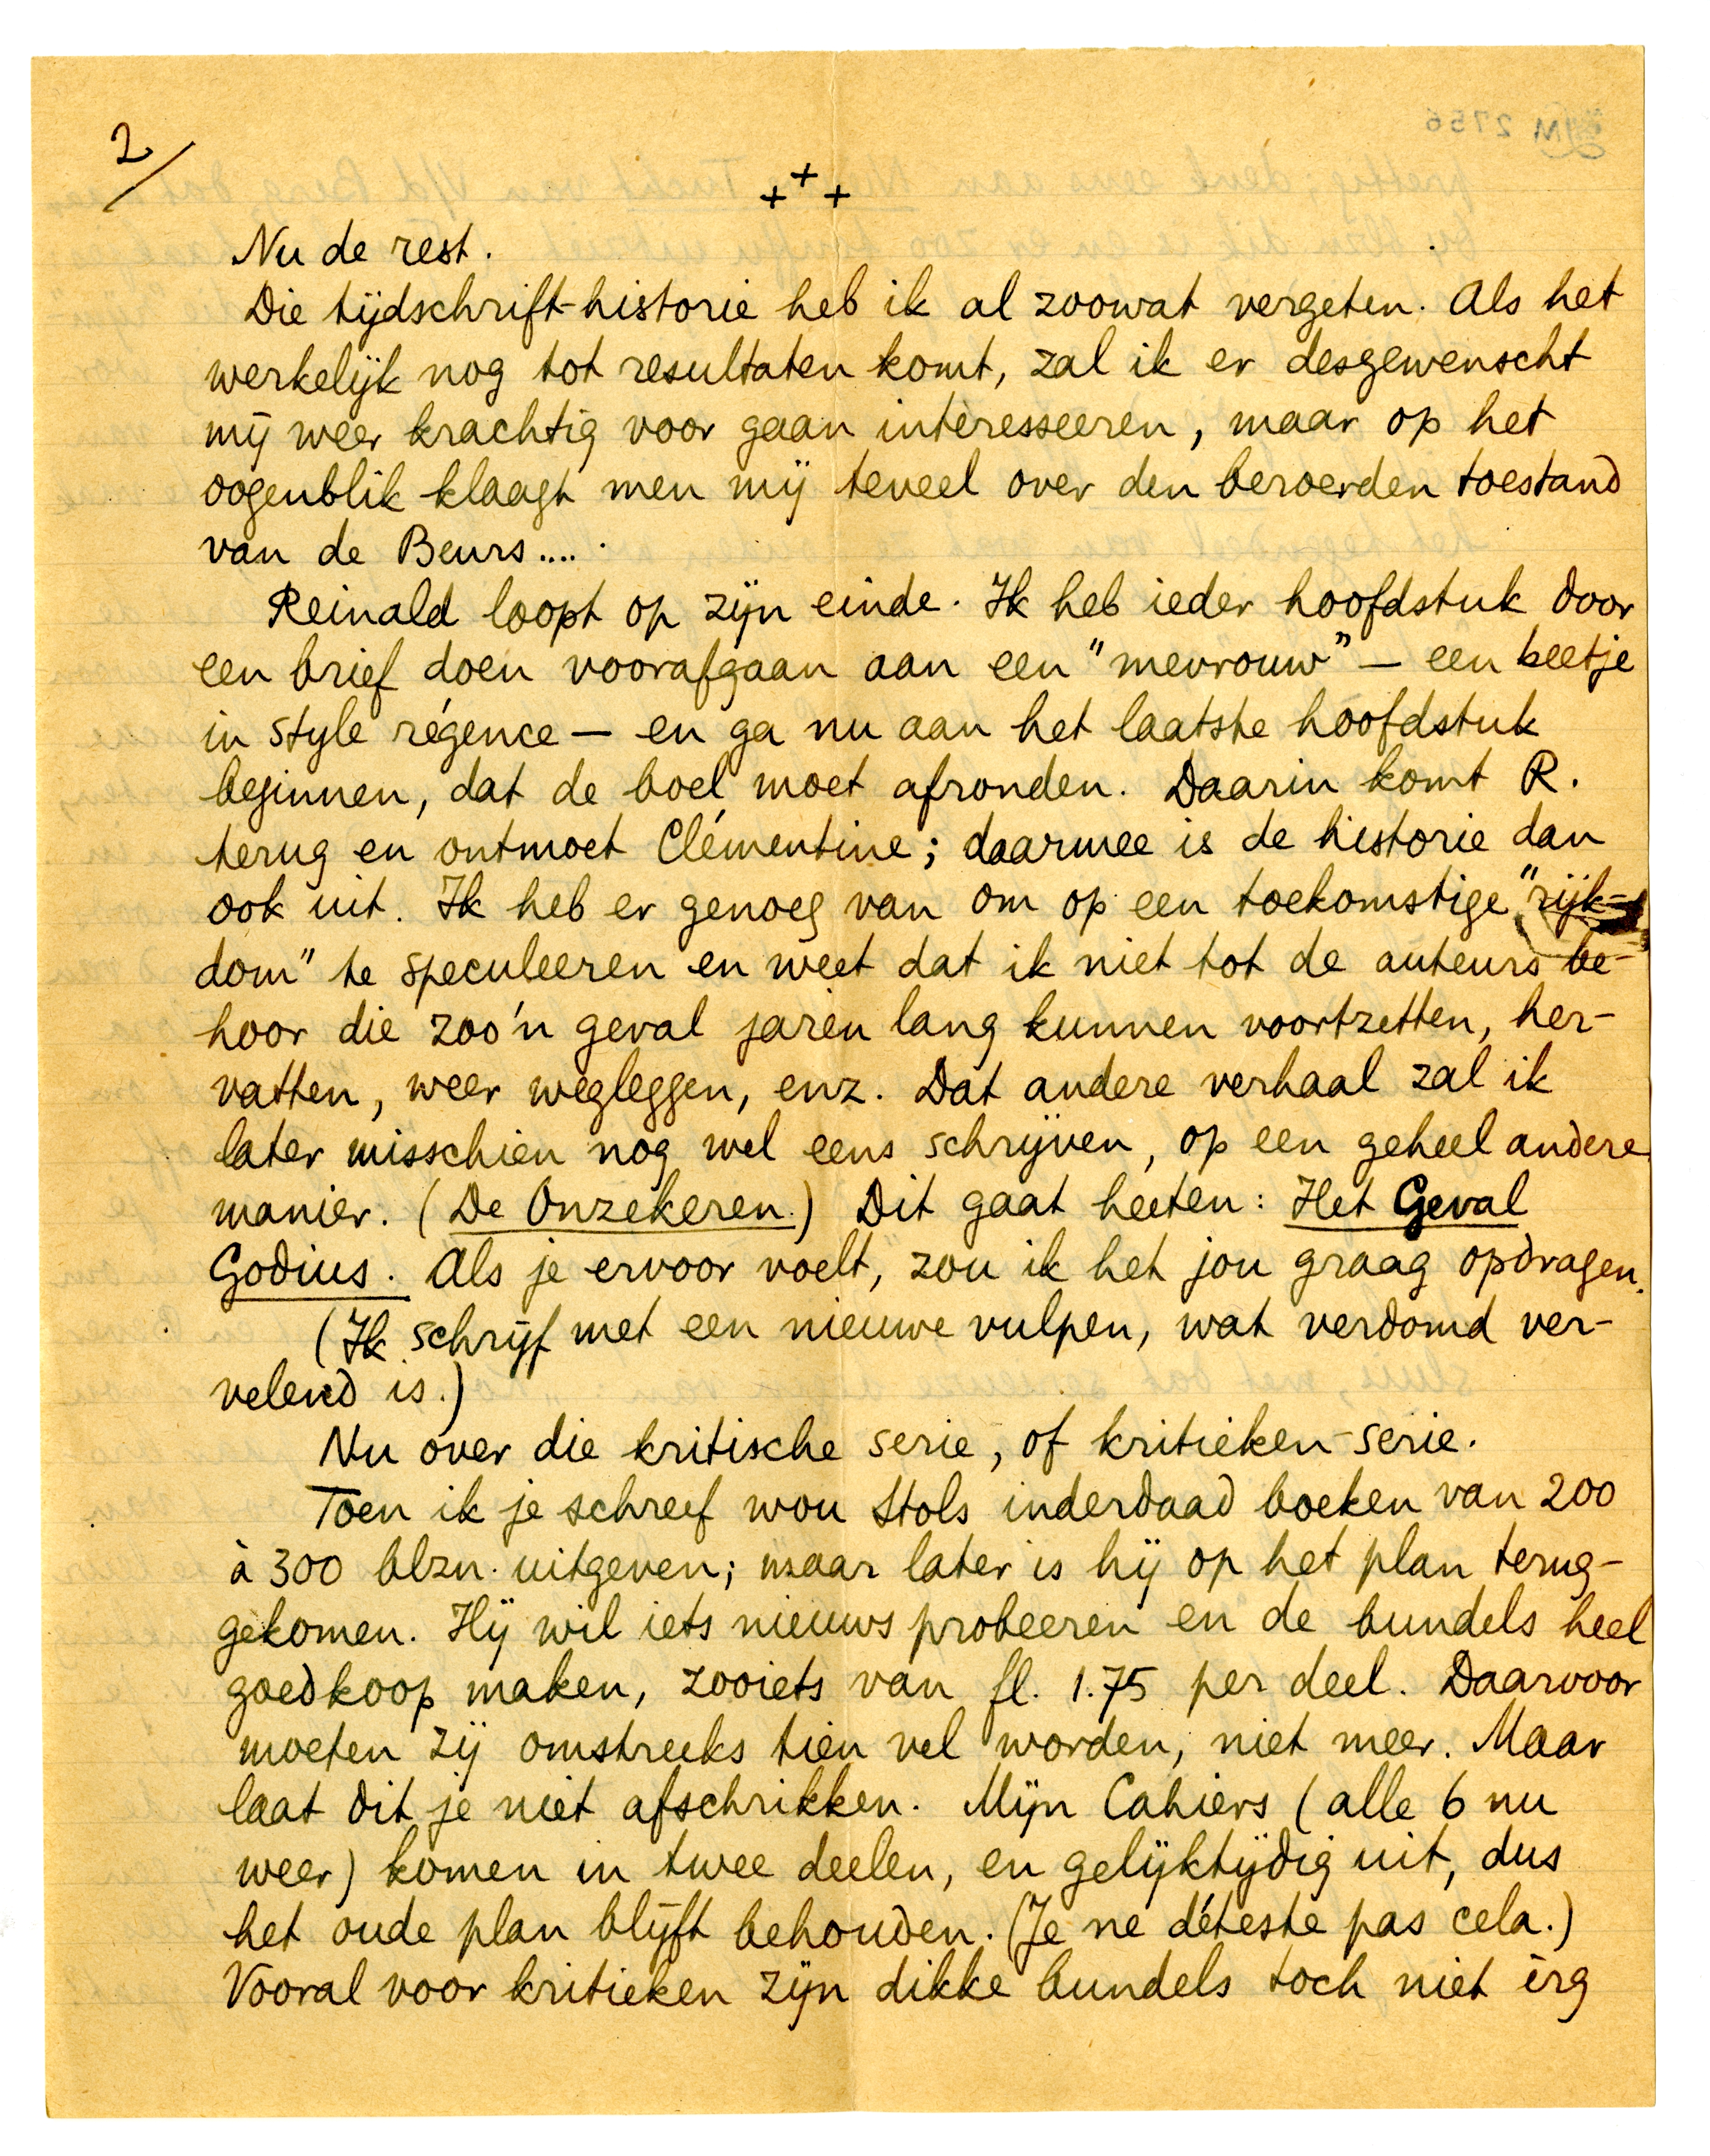 2/
+ + +
Nu de rest.
Die tijdschrift-historie heb ik al zoowat vergeten. Als het
werkelijk nog tot resultaten komt, zal ik er desgewenscht
mij weer krachtig voor gaan interesseeren, maar op het
oogenblik klaagt men mij teveel over den beroerden toestand
van de Beurs....
Reinald loopt op zijn einde. Ik heb ieder hoofdstuk door
een brief doen voorafgaan aan een "mevrouw" — een beetje
in style régence — en ga nu aan het laatste hoofdstuk
beginnen, dat de boel moet afronden. Daarin komt R.
terug en ontmoet Clémentine; daarmee is de historie dan
ook uit. Ik heb er genoeg van om op een toekomstige "rijk-
dom" te speculeeren en weet dat ik niet tot de auteurs be-
hoor die zoo'n geval jaren lang kunnen voortzetten, her-
vatten, weer wegleggen, enz. Dat andere verhaal zal ik
later misschien nog wel eens schrijven, op een geheel andere
manier. (De Onzekeren.) Dit gaat heeten: Het Geval
Godius. Als je ervoor voelt, zou ik het jou graag opdragen.
(Ik schrijf met een nieuwe vulpen, wat verdomd ver-
velend is.)
Nu over die kritische serie, of kritieken-serie.
Toen ik je schreef wou Stols inderdaad boeken van 200
à 300 blzn. uitgeven; maar later is hij op het plan terug-
gekomen. Hij wil iets nieuws probeeren en de bundels heel
goedkoop maken, zooiets van fl. 1.75 per deel. Daarvoor
moeten zij omstreeks tien vel worden, niet meer. Maar
laat dit je niet afschrikken. Mijn Cahiers (alle 6 nu
weer) komen in twee deelen, en gelijktijdig uit, dus
het oude plan blijft behouden. (Je ne déteste pas cela.)
Vooral voor kritieken zijn dikke bundels toch niet èrg